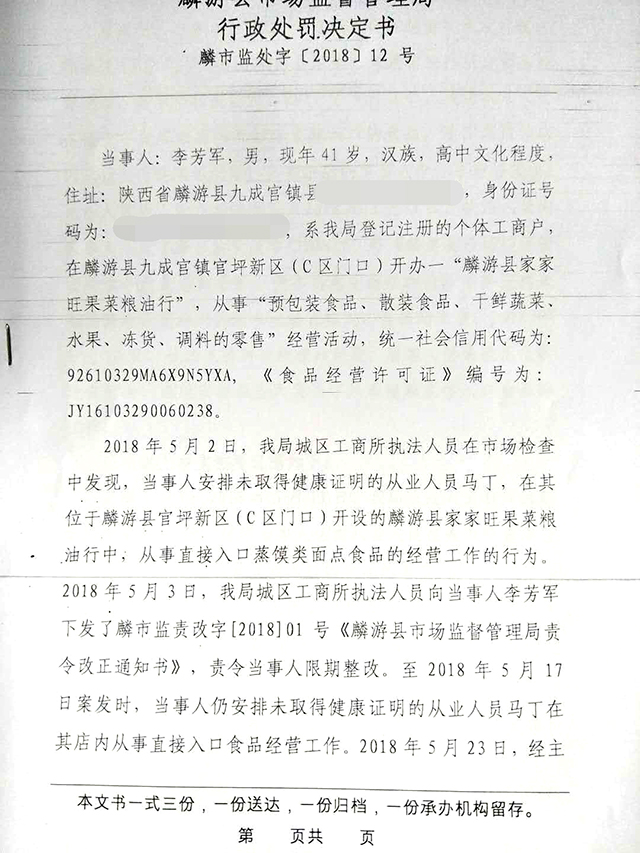 麟游县市场监督管理局
行政处罚决定书
麟市监处字〔2018〕12 号
当事人：李芳军，男，现年 41 岁，汉族，高中文化程度，
住址：陕西省麟游县九成宫镇县，身份证号
码为：，系我局登记注册的个体工商户，
在麟游县九成宫镇官坪新区（C 区门口）开办一“麟游县家家
旺果菜粮油行”，从事“预包装食品、散装食品、干鲜蔬菜、
水果、冻货、调料的零售”经营活动，统一社会信用代码为：
92610329MA6X9N5YXA，《食品经营许可证》编号为：
JY16103290060238。
2018 年 5 月 2 日，我局城区工商所执法人员在市场检查
中发现，当事人安排未取得健康证明的从业人员马丁，在其
位于麟游县官坪新区（C 区门口）开设的麟游县家家旺果菜粮
油行中，从事直接入口蒸馍类面点食品的经营工作的行为。
2018 年 5 月 3 日，我局城区工商所执法人员向当事人李芳军
下发了麟市监责改字[2018]01 号《麟游县市场监督管理局责
令改正通知书》，责令当事人限期整改。至 2018 年 5 月 17
日案发时，当事人仍安排未取得健康证明的从业人员马丁在
其店内从事直接入口食品经营工作。2018 年 5 月 23 日，经主
本文书一式三份，一份送达，一份归档，一份承办机构留存。
第 页共 页